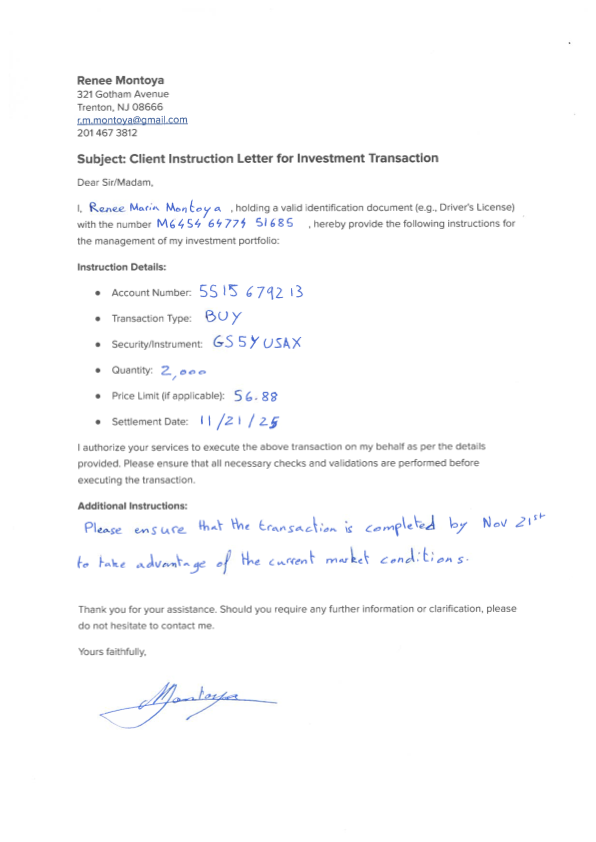 Renee Montoya
321 Gotham Avenue
Trenton, NJ 08666
r.m.montoya@gmail.com
201 467 3812
Subject: Client Instruction Letter for Investment Transaction
Dear Sir/Madam,
I, Renee Maria Montoya , holding a valid identification document (e.g., Driver's License)
with the number M6454 64774 51685 , hereby provide the following instructions for
the management of my investment portfolio:
Instruction Details:
• Account Number: 5515 6792 13
• Transaction Type: BUY
• Security/Instrument: GS5YUSAX
• Quantity: 2,000
• Price Limit (if applicable): 56.88
• Settlement Date: 11/21/25
I authorize your services to execute the above transaction on my behalf as per the details
provided. Please ensure that all necessary checks and validations are performed before
executing the transaction.
Additional Instructions:
Please ensure that the transaction is completed by Nov 21st
to take advantage of the current market conditions.
Thank you for your assistance. Should you require any further information or clarification, please
do not hesitate to contact me.
Yours faithfully,
Montoya